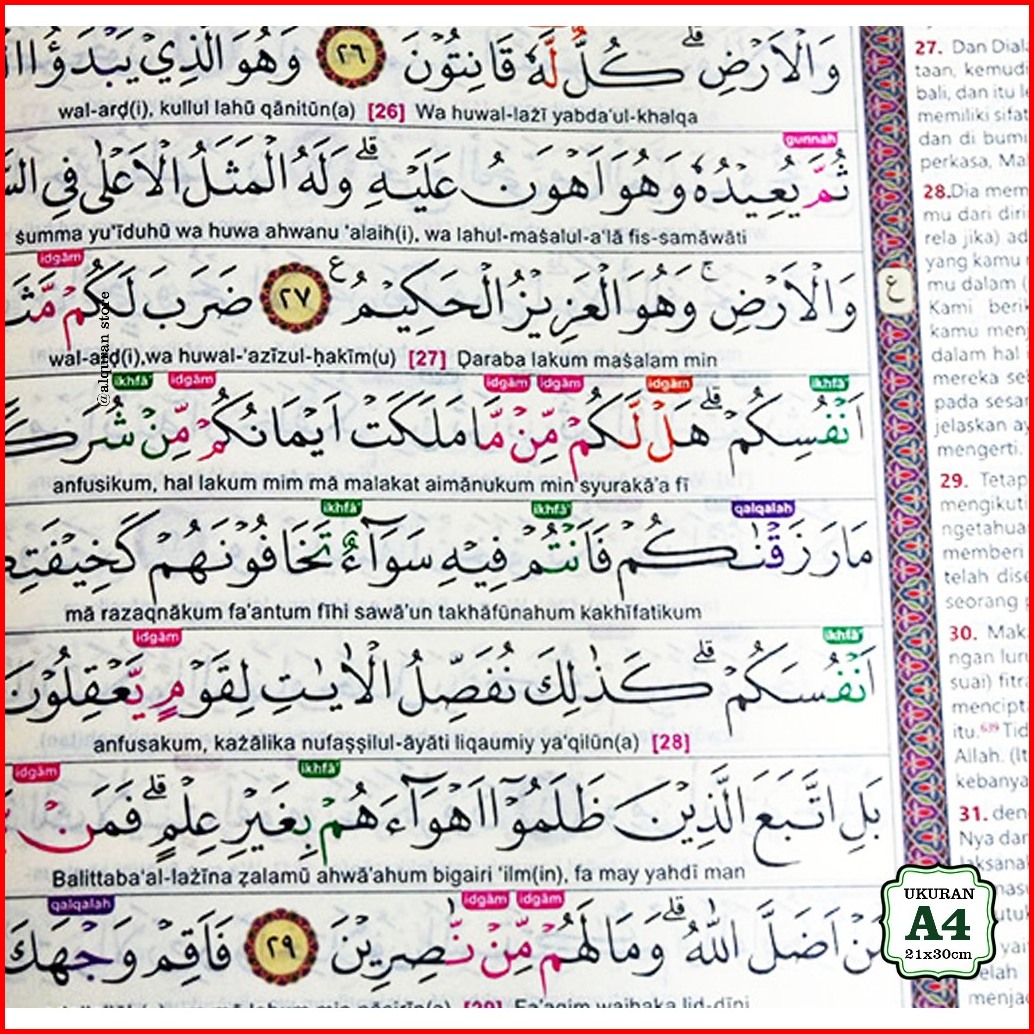 وَالْاَرْضِۗ كُلٌّ لَّهٗ قَانِتُوْنَ ٢٦ وَهُوَ الَّذِيْ يَبْدَؤُا
wal-arḍ(i), kullul lahū qānitūn(a) [26] Wa huwal-lażī yabda'ul-khalqa
gunnah
ثُمَّ يُعِيْدُهٗ وَهُوَ اَهْوَنُ عَلَيْهِۗ وَلَهُ الْمَثَلُ الْاَعْلٰى فِى
ṡumma yu‘īduhū wa huwa ahwanu ‘alaih(i), wa lahul-maṡalul-a‘lā fis-samāwāti
idgām
وَالْاَرْضِۚ وَهُوَ الْعَزِيْزُ الْحَكِيْمُ ع ٢٧ ضَرَبَ لَكُمْ
wal-arḍ(i),wa huwal-‘azīzul-ḥakīm(u) [27] Ḍaraba lakum maṡalam min
ikhfā' idgām idgām idgām idgām ikhfā'
اَنْفُسِكُمْۗ هَلْ لَّكُمْ مِّنْ مَّا مَلَكَتْ اَيْمَانُكُمْ مِّنْ
anfusikum, hal lakum mim mā malakat aimānukum min syurakā'a fī
ikhfā' ikhfā' qalqalah
مَا رَزَقْنٰكُمْ فَاَنْتُمْ فِيْهِ سَوَاۤءٌ تَخَافُوْنَهُمْ
mā razaqnākum fa'antum fīhi sawā'un takhāfūnahum kakhīfatikum
idgām ikhfā'
اَنْفُسَكُمْۗ كَذٰلِكَ نُفَصِّلُ الْاٰيٰتِ لِقَوْمٍ يَّعْقِلُوْنَ
anfusakum, każālika nufaṣṣilul-āyāti liqaumiy ya‘qilūn(a) [28]
idgām ikhfā'
بَلِ اتَّبَعَ الَّذِيْنَ ظَلَمُوْٓا اَهْوَاۤءَهُمْ بِغَيْرِ عِلْمٍۗ فَمَنْ
Balittaba‘al-lażīna ẓalamū ahwā'ahum bigairi ‘ilm(in), fa may yahdī man
qalqalah idgām idgām
اَضَلَّ اللّٰهُ ۗوَمَا لَهُمْ مِّنْ نّٰصِرِيْنَ ٢٩ فَاَقِمْ وَجْهَكَ
[29] Fa'aqim wajhaka lid-dīni
@alquran store
ع
27. Dan
taan,
bali, dan itu
memiliki
dan di
perkasa,
28.Dia
mu dari
rela jika)
yang kamu
mu dalam
Kami
kamu
dalam hal
mereka
pada
jelaskan
mengerti.
29.
mengikut
memberi
telah
seorang
30.
ngan
suai)
itu.⁶³⁹
Allah.
31.
Nya
UKURAN
A4
21x30cm